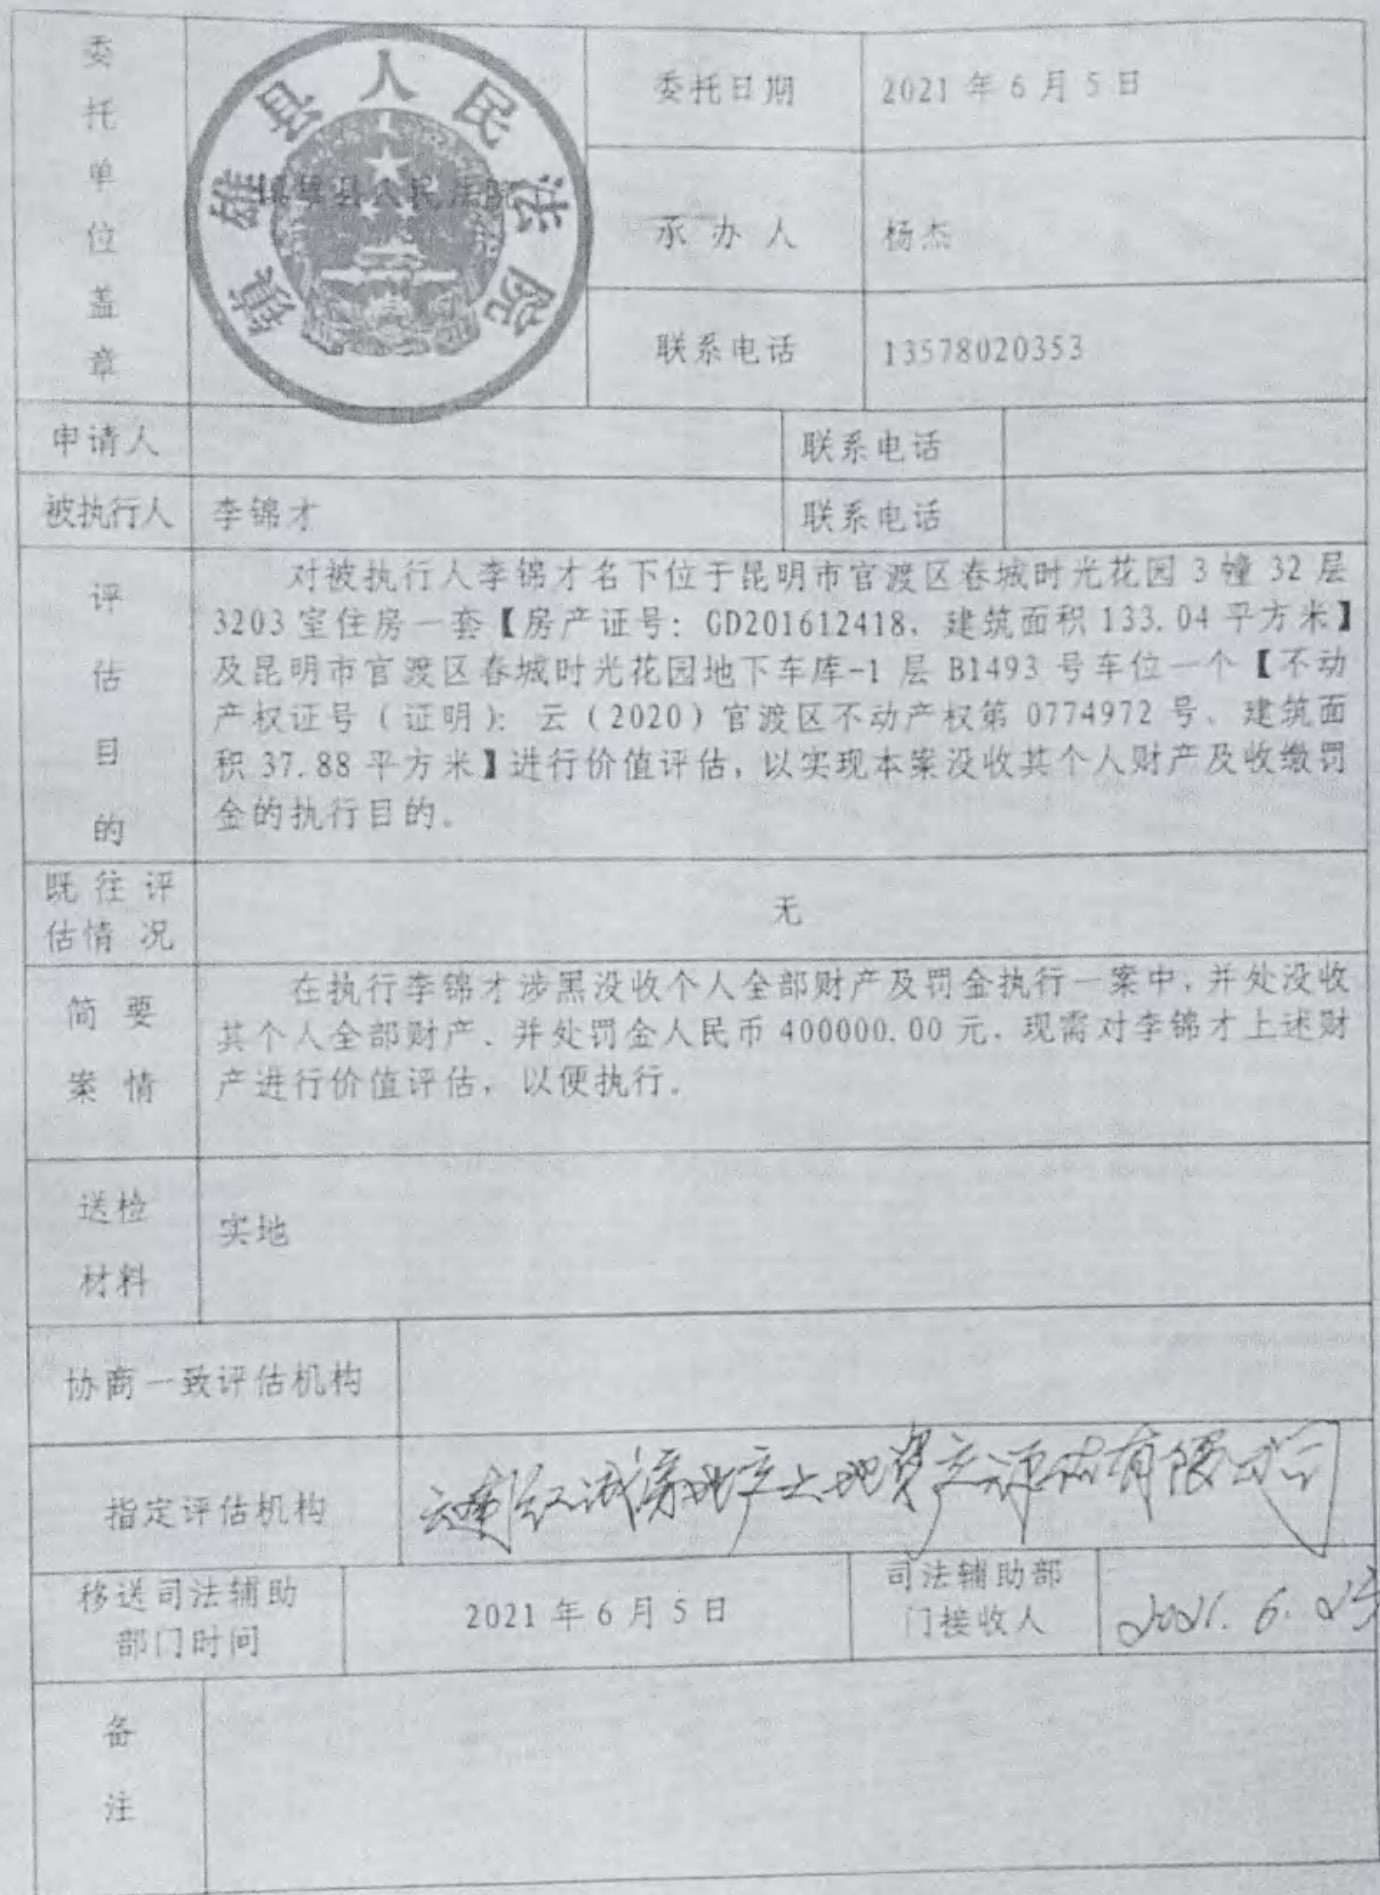 委托单位盖章
镇雄县人民法院
镇雄县人民法院
委托日期 2021年6月5日
承办人 杨杰
联系电话 13578020353
申请人 联系电话
被执行人 李锦才 联系电话
评估目的
对被执行人李锦才名下位于昆明市官渡区春城时光花园3幢32层
3203室住房一套【房产证号：GD201612418、建筑面积133.04平方米】
及昆明市官渡区春城时光花园地下车库-1层B1493号车位一个【不动
产权证号（证明）：云（2020）官渡区不动产权第0774972号、建筑面
积37.88平方米】进行价值评估，以实现本案没收其个人财产及收缴罚
金的执行目的。
既往评
估情况
无
简要
案情
在执行李锦才涉黑没收个人全部财产及罚金执行一案中，并处没收
其个人全部财产、并处罚金人民币400000.00元，现需对李锦才上述财
产进行价值评估，以便执行。
送检
材料
实地
协商一致评估机构
指定评估机构 诚房地产土地资产评估有限公司
移送司法辅助
部门时间
2021年6月5日
司法辅助部
门接收人
2021.6.25
备
注